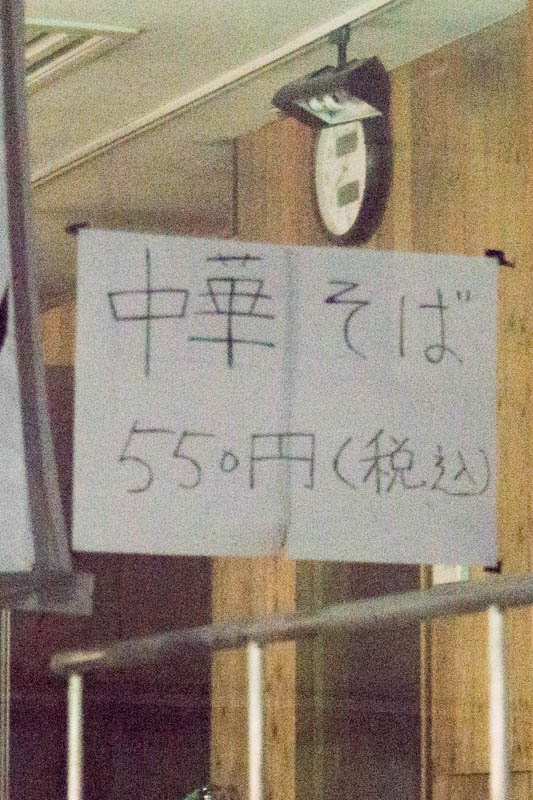 中華そば
550円(税込)